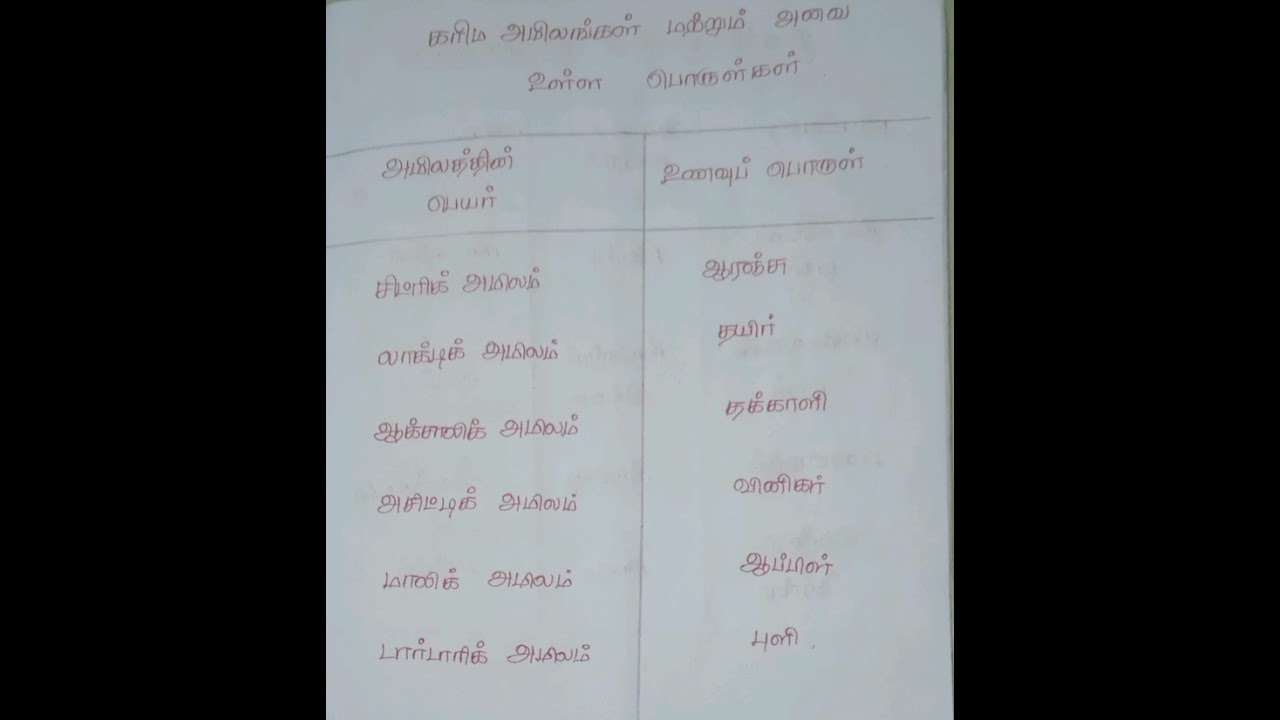 கரிம அமிலங்கள் மற்றும் அவை
உள்ள பொருள்கள்
அமிலத்தின் உணவுப் பொருள்
பெயர்
சிட்ரிக் அமிலம் ஆரஞ்சு
லாக்டிக் அமிலம் தயிர்
ஆக்சாலிக் அமிலம் தக்காளி
அசிட்டிக் அமிலம் வினிகர்
மாலிக் அமிலம் ஆப்பிள்
டார்டாரிக் அமிலம் புளி .